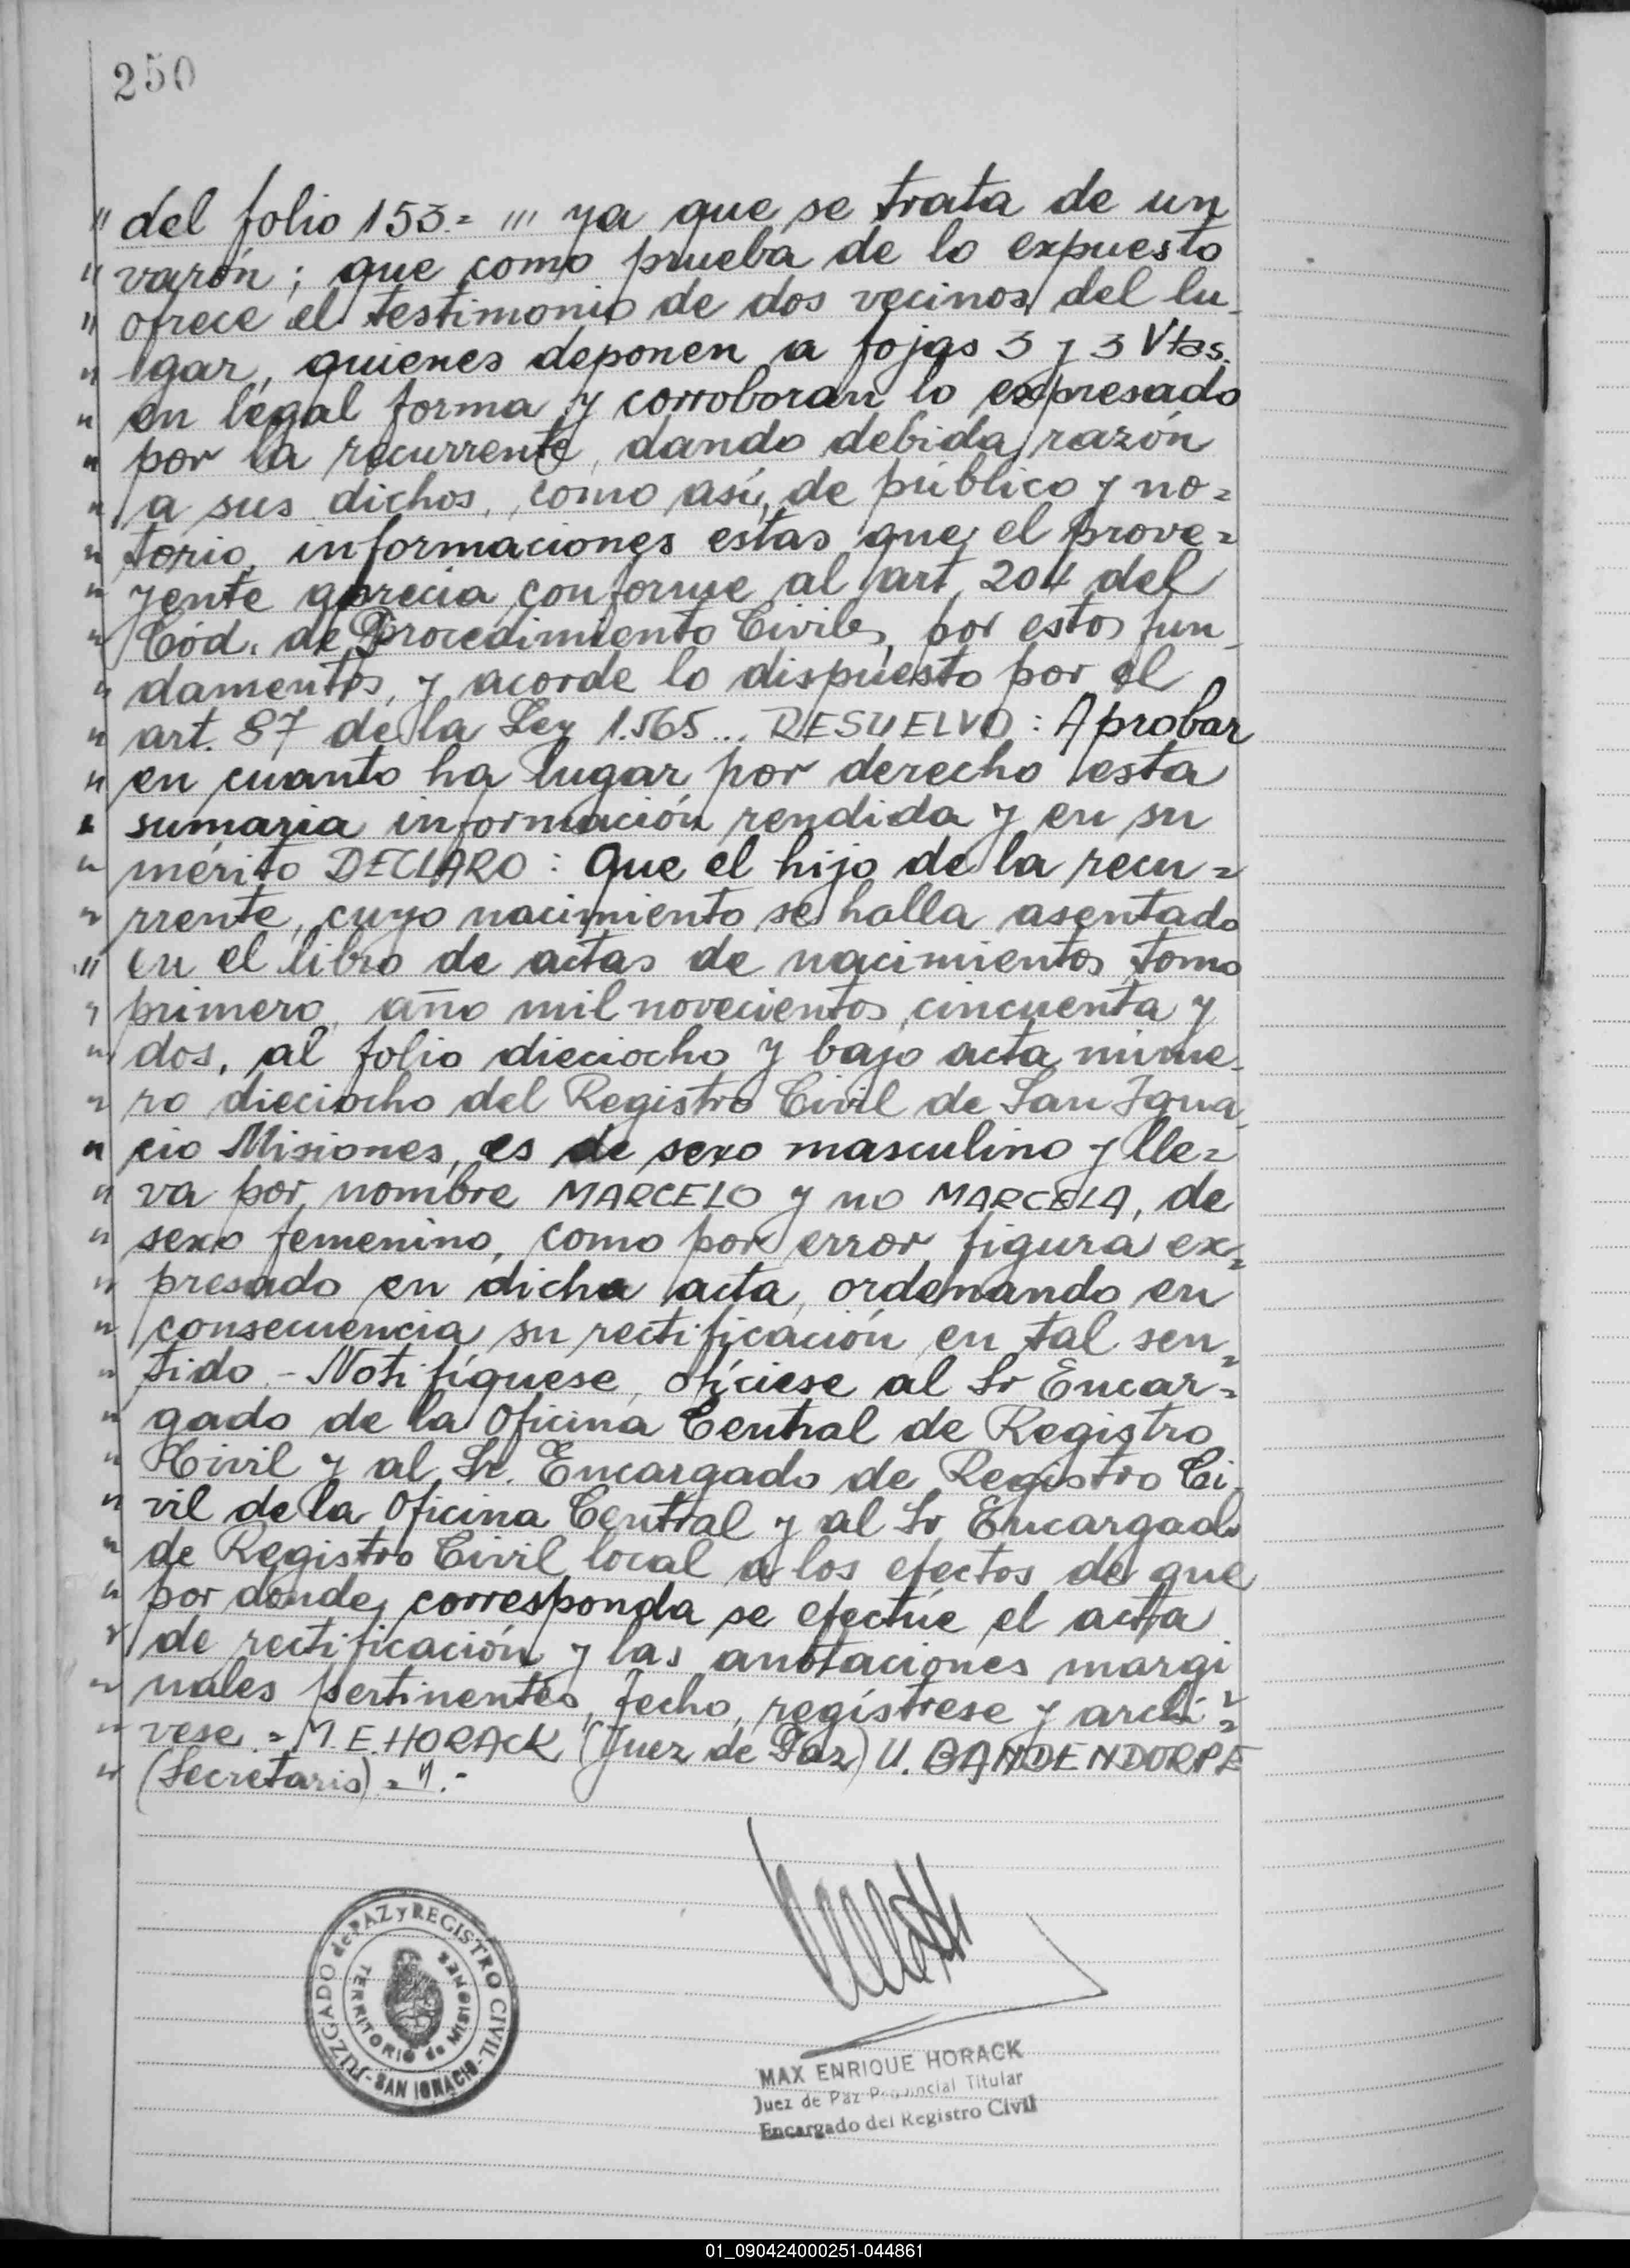 250
" del folio 153.= "' ya que se trata de un
" varón; que como prueba de lo expuesto
" ofrece el testimonio de dos vecinos del lu-
" gar, quienes deponen a fojas 3 y 3 Vtas.
" en legal forma y corroboran lo expresado
" por la recurrente, dando debida razón
" a sus dichos, como así, de público y no=
" torio, informaciones estas que el prove=
" yente aprecia conforme al art. 204 del
" Cód. de Procedimiento Civiles, por estos fun-
" damentos, y acorde lo dispuesto por el
" art. 87 de la Ley 1.565... RESUELVO: Aprobar
" en cuanto ha lugar por derecho esta
" sumaria información rendida y en su
" mérito DECLARO: Que el hijo de la recu=
" rrente, cuyo nacimiento se halla asentado
" en el libro de actas de nacimientos, tomo
" primero, año mil novecientos cincuenta y
" dos, al folio dieciocho y bajo acta núme-
" ro dieciocho del Registro Civil de San Igna-
" cio Misiones, es de sexo masculino y lle=
" va por nombre MARCELO y no MARCELA, de
" sexo femenino, como por error figura ex=
" presado en dicha acta, ordenando en
" consecuencia su rectificación en tal sen=
" tido.- Notifíquese, ofíciese al Sr Encar=
" gado de la Oficina Central de Registro
" Civil y al Sr. Encargado de Registro Ci-
" vil de la Oficina Central y al Sr Encargado
" de Registro Civil local a los efectos de que
" por donde corresponda se efectúe el acta
" de rectificación y las anotaciones margi
" nales pertinentes, fecho, regístrese y archí=
" vese.= M. E. HORACK (Juez de Paz) U. BANDENDORPE
" (Secretario).=".-
JUZGADO de PAZ y REGISTRO CIVIL
TERRITORIO de MISIONES
-SAN IGNACIO-
MAX ENRIQUE HORACK
Juez de Paz Provincial Titular
Encargado del Registro Civil
01_090424000251-044861